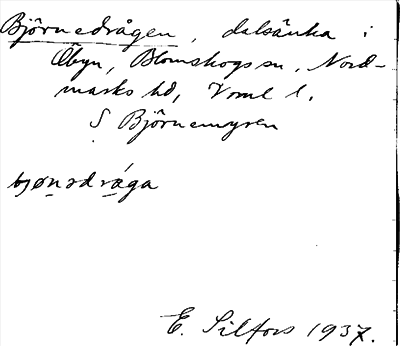 Björnedrågen, dalsänka i
Åbyn, Blomskogs sn, Nord-
marks hd, Vrml l.
S Björnemyren
bjønədråga
E. Silfors 1937.